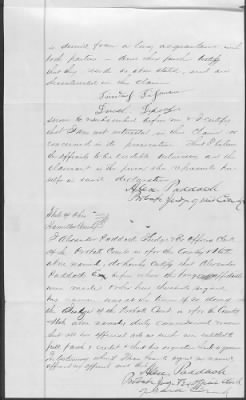 is derived from a long acquaintance with
both parties. And they further testify
that they reside as above stated, and are
disinterested in this claim
Sworn to & subscribed before me & I certify
that I am not interested in this claim or
concerned in its prosecution. That I believe
the affiants to be credible witnesses and the
claimant is the person she represents her-
self in said declaration
Alex Paddack
Probate Judge
State of Ohio
Hamilton County
I Alexander Paddack Judge & Ex Officio Clerk
of the Probate Court in & for the County & State
above named, do hereby certify that Alexander
Paddack before whom the affidavits
were made & who has thereunto signed
his name was at the time of so doing
the Judge of the Probate Court in & for the County &
State above named, duly commissioned & sworn
that all his official acts as such are entitled to
full faith & credit & that his signature is genuine
In testimony whereof I have hereunto signed my name &
official
Alex Paddack
Probate Judge & Ex Officio Clerk